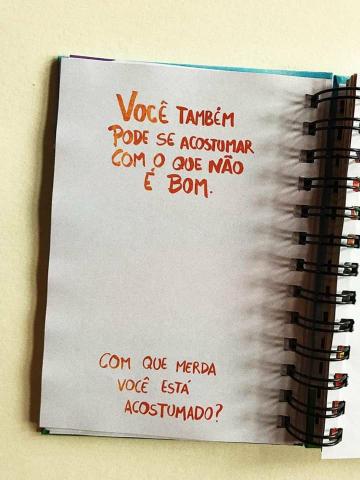 VOCÊ TAMBÉM
PODE SE ACOSTUMAR
COM O QUE NÃO
É BOM.
COM QUE MERDA
VOCÊ ESTÁ
ACOSTUMADO?